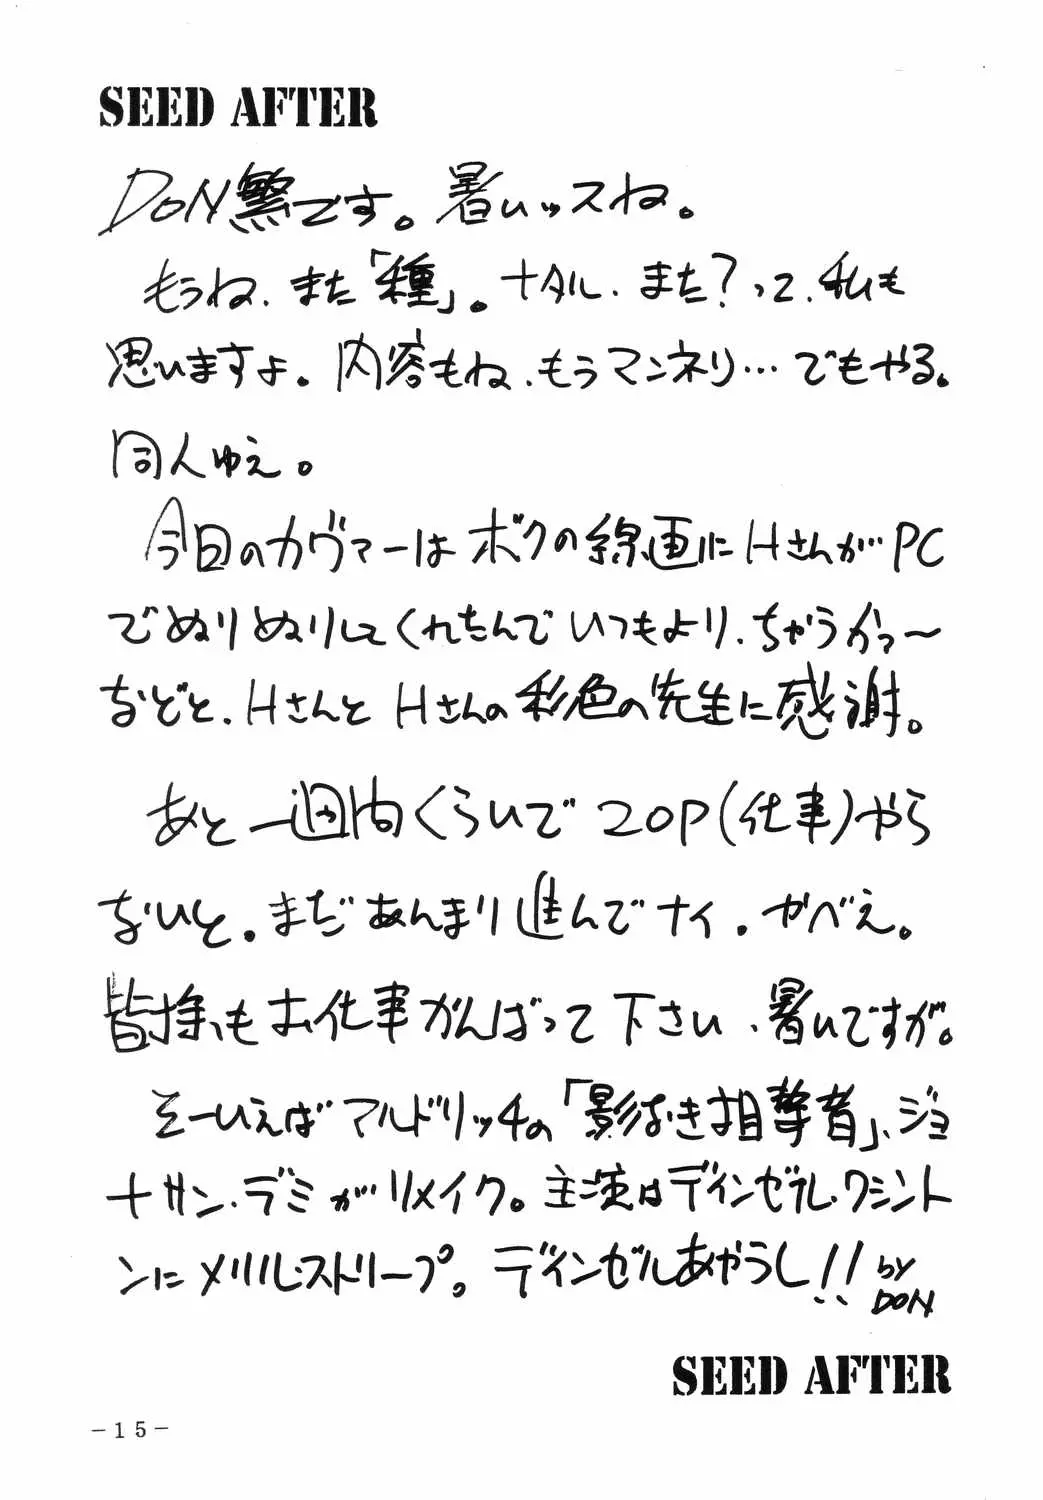 SEED AFTER
DON繁です。暑いッスね。
もうね、また「種」。ナタル、また?って、私も
思いますよ。内容もね、もうマンネリ…でもやる。
同人ゆえ。
今回のカヴァーはボクの線画にHさんがPC
でぬりぬりしてくれたんでいつもより、ちゃうかっ〜
などと、HさんとHさんの彩色の先生に感謝。
あと一週間くらいで20P(仕事)やら
ないと。まだあんまり進んでナイ。がべえ。
皆様もお仕事がんばって下さい、暑いですが。
そーいえばアルドリッチの「影なき狙撃者」、ジョ
ナサン・デミがリメイク。主演はディンゼル・ワシント
ンにメリル・ストリープ。ディンゼルあやうし!! BY
DON
SEED AFTER
-15-